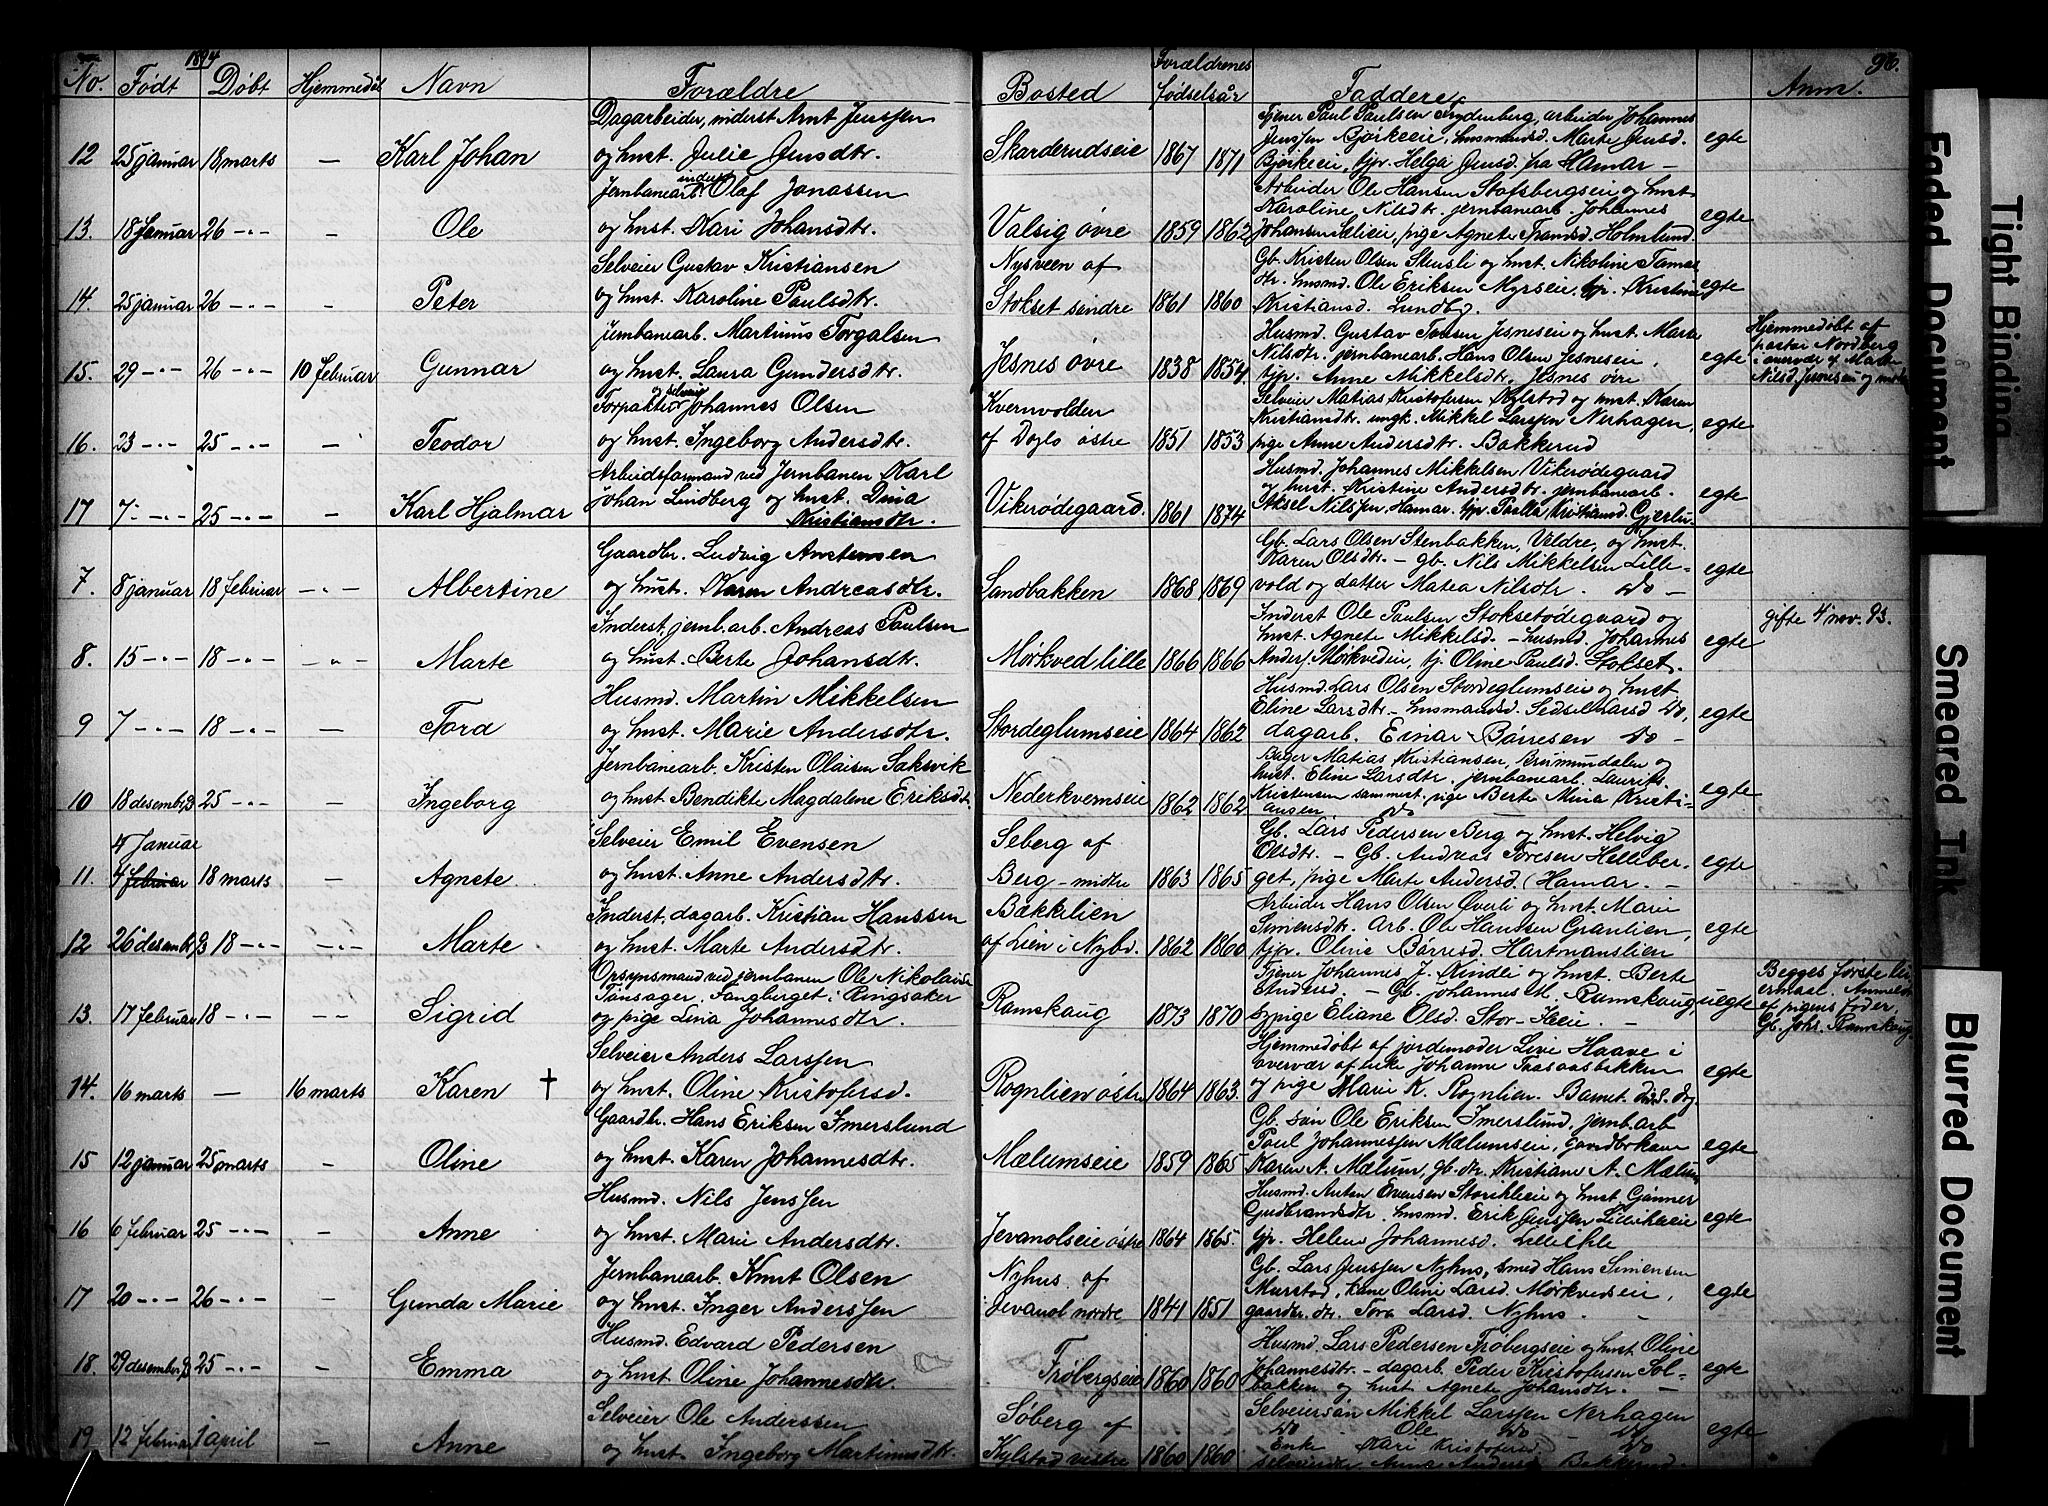 1894
96.
No. Født Døbt Hjemmedøbt Navn Forældre Bosted Forældrenes Fødselsår Faddere Anm.
12 25 januar 18 marts — Karl Johan
Dagarbeider, inderst Arnt Jenssen
og hust. Julie Jensdtr.
Skarderudseie 1867 1871
Tjener Paul Paulsen Frydenberg, arbeider Johannes
Jenssen Bjørkeeie, husmandsd. Marte Jensd.
Bjørkeeie, tjp. Helga Jensd. fra Hamar —
egte
13. 18 Januar 26 -"- — Ole
Jernbanearb. inderst Olaf Jonassen
og hust. Kari Johansdtr.
Valsig øvre 1859 1862
Arbeider Ole Hansen Stofsbergseie og hust.
Karoline Nilsdtr. jernbanearb. Johannes
Johansen Sælieie, pige Agnete Holmlund.
egte
14. 25 januar 26 -"- — Peter
Selveier Gustav Kristiansen
og hust. Karoline Paulsdtr.
Nysveen af
Stokset søndre 1861 1860
Gb. Kristen Olsen Skusli og hust. Nikoline
dtr. husmd. Ole Eriksen Myrseie, tjp. Kristine
Kristiansd. Lundby.
egte
15. 29 -"- 26 -"- 10 februar Gunnar
Jernbanearb. Martinus Torgalsen
og hust. Laura Gundersdtr.
Jesnes øvre 1838 1854
Husmd. Gustav Jesneseie og hust. Marte
Nilsdtr. jernbanearb. Hans Olsen Jesneseie,
tjp. Anne Mikkelsdtr. Jesnes øvre
egte
Hjemmedøbt af
pastor Nordberg
i overvær af Marte
Nilsd. Jesneseie og
16. 23 -"- 25 -"- — Teodor
Forpakter og selveier Johannes Olsen
og hust. Ingeborg Andersdtr.
Kvernvolden
af Doglo østre 1851 1853
Selveier Matias Kristofersen Kylstad og hust. Karen
Kristiansdtr. ungk. Mikkel Larssen Nerhagen,
pige Anne Andersdtr. Bakkerud
egte
17 7 -"- 25 -"- — Karl Hjalmar
Arbeidsformand ved Jernbanen Karl
Johan Lundberg og hust. Dina
Kristiansdtr.
Vikerødegaard. 1861 1874
Husmd. Johannes Mikkelsen Vikerødegaard
og hust. Kristine Andersdtr. jernbanearb.
Aksel Nilssen, Hamar. tjp. Kristiansd.
egte
7. 8 januar 18 februar -"- Albertine
Gaardbr. Ludvig Anstensen
og hust. Karen Andreasdtr.
Sandbakken 1868 1869
Gb. Lars Olsen Stenbakken, Veldre, og hust.
Karen Olsdtr. — gb. Nils Mikkelsen Lille-
vold og datter Matea Nilsdtr. Do —
egte
8. 15 -"- 18 -"- -"- Marte
Inderst, jernb.arb. Andreas Paulsen
og hust. Berte Johansdtr.
Mørkved lille 1866 1866
Inderst Ole Paulsen Stoksetødegaard og
hust. Agnete Mikkelsd. — husmd. Johannes
Anderss. Mørkvedeie, tj. Oline Paulsd. Stokset.
egte
gifte 4 nov. 93.
9 7 -"- 18 -"- — Tora
Husmd. Martin Mikkelsen
og hust. Marie Andersdtr.
Stordeglumseie 1864 1862
Husmd. Lars Olsen Stordeglumseie og hust.
Eline Larsdtr — husmandsd. Sedsel Larsd Do,
dagarb. Einar Børresen Do —
egte
10 18 desembr 93 25 -"- — Ingeborg
Jernbanearb. Kristen Olaisen Saksvik
og hust Bendikte Magdalene Eriksdtr.
Nederkvernseie 1862 1862
Bager Matias Kristiansen, Brumundalen og
hust. Eline Larsdtr. jernbanearb. Laurits
Kristensen sammest., pige Berte Mina Kristi-
ansen Do
egte
11. 4 Januar 4 februar 18 marts — Agnete
Selveier Emil Evensen
og hust. Anne Andersdtr.
Seberg af
Berg — midtre 1863 1865
Gb. Lars Pedersen Berg og hust. Helvig
Olsdtr. — Gb. Andreas Toresen Helliber-
get, pige Marte Andersd. (Hamar. —
egte
12 26 desemb. 93 18 -"- -"- Marte
Inderst, dagarb. Kristian Hanssen
og hust. Marte Andersdtr.
Bækkelien
af Lien i Nybd. 1862 1860
Arbeider Hans Olsen Øverli og hust. Marie
Simensdtr. Arb. Ole Hanssen Granlien,
tjp. Oline Børresd. Hartmanslien
egte
13. 17 februar 18 -"- -- Sigrid
Opsynsmand ved jernbanen Ole Nikolaisen
Tønsager, Fangberget i Ringsaker
og pige Lina Johannesdtr.
Ramskaug 1873 1870
Tjener Johannes J. Kindli og hust. Berte
Andersd. — Gb. Johannes M. Ramskaug,
sypige Eliane Olsd. Stor-Heie. —
uegte
Begges første lei-
ermaal. Anmeldt
af pigens fader,
Gb. Johs. Ramskaug.
14. 16 marts — 16 marts Karen †
Selveier Anders Larssen
og hust. Oline Kristofersd.
Rognlien østre 1864 1863.
Hjemmedøbt af jordemoder Live Haave i
overvær af enke Johanne Taasaasbakken
og pige Marie K. Rognlien. Barnet død s. dag
egte
15 12 januar 25 marts — Oline
Gaardbr. Hans Eriksen Imerslund
og hust. Karen Johannesdtr.
Mælumseie 1859 1865
Gb. søn Ole Eriksen Imerslund, jernb.arb
Paul Johannessen Mælumseie, gaardbrkone
Karen A. Mælum, gb. dtr. Kristiane A. Mælum
egte
16 6 februar 25 -"- — Anne
Husmd. Nils Jenssen
og hust. Marie Andersdtr.
Jevanolseie østre 1864 1865.
Husmd. Anton Evensen Storihleeie og hust. Gunner
Gudbrandsdtr. husmd. Erik Jenssen Lilleihleeie
tjp. Helene Johannesd. Lilleihle
egte
17 20 -"- 26 -"- — Gunda Marie
Jernbanearb. Knut Olsen
og hust. Inger Anderssen
Nyhus af
Jevanol nordre 1841 1851
Gb. Lars Jenssen Nyhus, smed Hans Simensen
Murstad, kone Oline Larsd. Mørkvedseie,
gaardbr. dtr. Tora Larsd. Nyhus. —
egte
18. 29 desember 93 25 -"- — Emma
Husmd. Edvard Pedersen
og hust. Oline Johannesdtr.
Frøbergseie 1860 1860
Husmd. Lars Pedersen Frøbergseie og hust. Oline
Johannesdtr. — dagarb. Peder Kristofersen Sol-
bakken og hust Agnete Johansdtr. —
egte
19 12 februar 1 april — Anne
Selveier Ole Anderssen
og hust. Ingeborg Martinusdtr.
Søberg af
Kylstad vestre 1860 1860
Selveiersøn Mikkel Larssen Nerhagen
Do Ole Do Do
Enke Kari Kristofersd. Do
Selveierdtr. Anne Andersd. Bakkerud.
egte
Faded Document
Tight Binding
Smeared Ink
Blurred Document